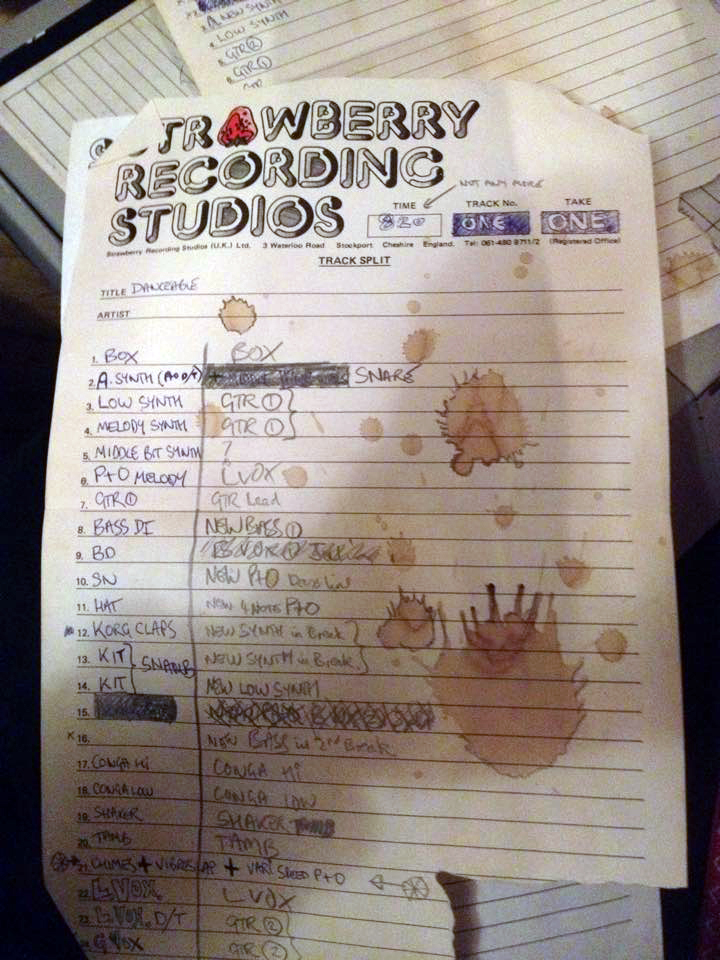 A. NEW SYNTH
LOW SYNTH
GTR ②
GTR ①
STRAWBERRY
RECORDING
STUDIOS
NOT ANY MORE
TIME TRACK No. TAKE
820 ONE ONE
Strawberry Recording Studios (U.K.) Ltd. 3 Waterloo Road Stockport Cheshire England. Tel: 061-480 9711/2 (Registered Office)
TRACK SPLIT
TITLE DANCEABLE
ARTIST
1. BOX BOX
2. A. SYNTH (P+O D/T) + SNARE
3. LOW SYNTH GTR ①
4. MELODY SYNTH GTR ①
5. MIDDLE BIT SYNTH ?
6. P+O MELODY LVOX
7. GTR ① GTR Lead
8. BASS DI NEW BASS ①
9. BD
10. SN NEW P+O
11. HAT NEW 4 NOTE P+O
12. KORG CLAPS NEW SYNTH in Break
13. KIT NEW SYNTH in Break
SNARE
14. KIT NEW LOW SYNTH
15.
x 16. NEW BASS in 2nd Break
17. CONGA Hi CONGA Hi
18. CONGA LOW CONGA LOW
19. SHAKER SHAKER
20. TAMB TAMB
21. CHIMES + VIBRESLAP + VARI SPEED P+O
22. L VOX L VOX
23. L VOX. D/T GTR ②
24. G VOX GTR ②